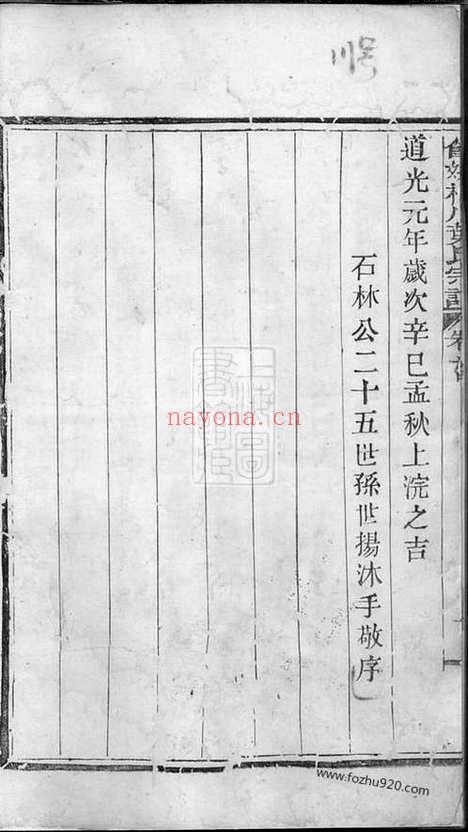 道光元年歲次辛巳孟秋上浣之吉
石林公二十五世孫世揚沐手敬序
葉氏宗譜
上海圖書館藏
nayona.cn
www.fozhu920.com